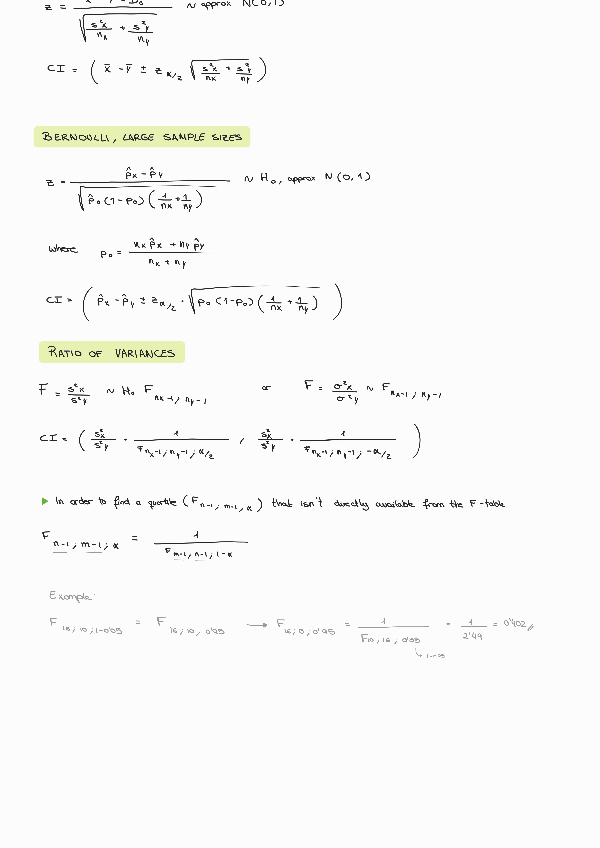 z = x̄ - ȳ - D₀ / √(s²x/nx + s²y/ny) ~ approx N(0,1)
CI = ( x̄ - ȳ ± z α/2 √(s²x/nx + s²y/ny) )
BERNOULLI, LARGE SAMPLE SIZES
z = p̂x - p̂y / √(p̂₀ (1-p₀) (1/nx + 1/ny)) ~ H₀, approx N(0,1)
where p₀ = nx p̂x + ny p̂y / nx + ny
CI = ( p̂x - p̂y ± z α/2 · √(p₀ (1-p₀) (1/nx + 1/ny)) )
RATIO OF VARIANCES
F = s²x / s²y ~ H₀ F nx-1; ny-1 or F = σ²x / σ²y ~ F nx-1; ny-1
CI = ( s²x/s²y · 1 / F nx-1; ny-1; α/2 , s²x/s²y · 1 / F nx-1; ny-1; -α/2 )
▶ In order to find a quartile (F n-1; m-1; α) that isn't directly available from the F-table
F n-1; m-1; α = 1 / F m-1; n-1; 1-α
Example:
F 16; 10; 1-0'05 = F 16; 10; 0'95 → F 16; 0; 0'95 = 1 / F 10; 16; 0'05 = 1 / 2'49 = 0'402